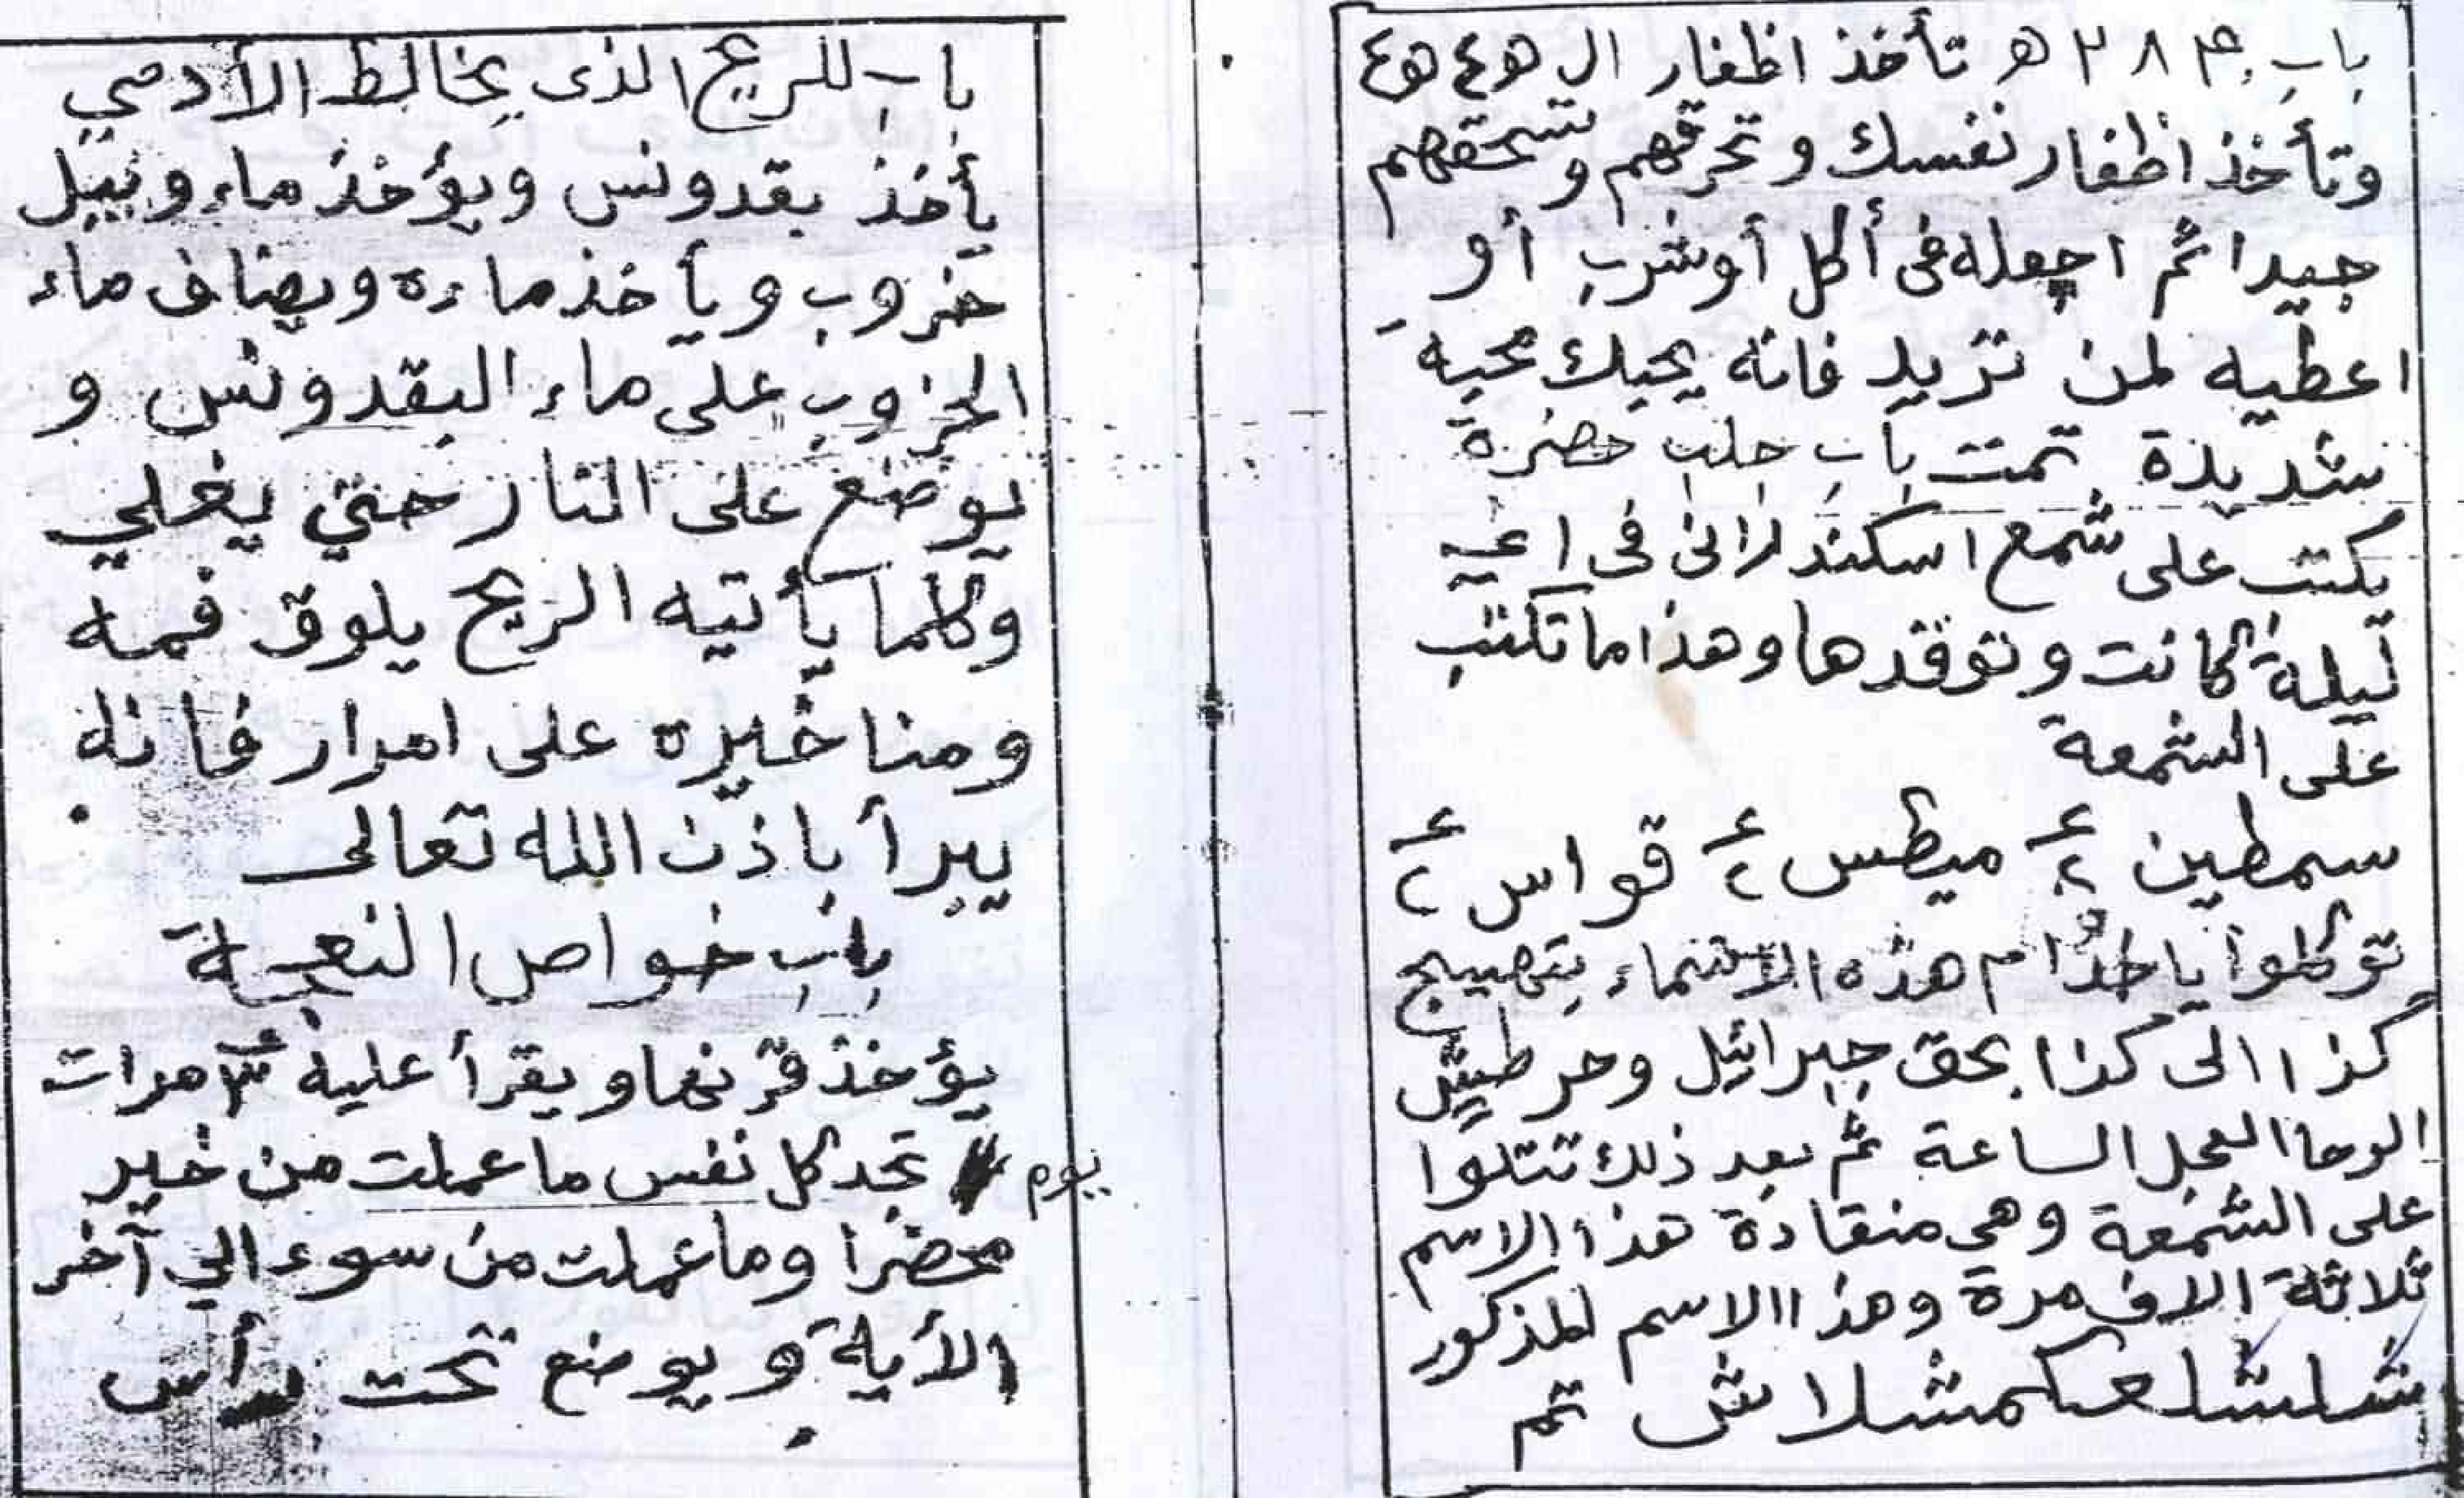 باب ٢٨٣ ھ تأخذ اظفار ال ھ٤ھ٤
وتأخذ اظفار نفسك وتحرقهم وتسحقهم
جيدا ثم اجعله فى أكل أو شرب أو
اعطيه لمن تريد فانه يحبك محبة
شديدة تمت باب جلب حضرة
يكتب على شمع اسكندرانى فى اي
ليلة كانت وتوقدها وهذا ما تكتب
على الشمعة
سمطين ميطس قواس
توكلوا يا خدام هذه الاسماء بتهييج
كذا الى كذا بحق جبرائيل وحر طيش
الوحا العجل الساعة ثم بعد ذلك تتلوا
على الشمعة وهي منقادة هذا الاسم
ثلاثة الاف مرة وهذا الاسم المذكور
تم
باب للريح الذى يخالط الأدمي
يأخذ بقدونس ويؤخذ ماء ويبل
خروب ويأخذ ماءه ويضاف ماء
الخروب على ماء البقدونس و
يوضع على النار حتي يغلي
وكلما يأتيه الريح يلوق فمه
ومناخيره على امرار فانه
يبرأ باذن الله تعالى
باب خواص النعجة
يؤخذ قرنها ويقرأ عليه ٣ مرات
يوم تجد كل نفس ما عملت من خير
محضرا وما عملت من سوء الي آخر
الأية و يوضع تحت رأس